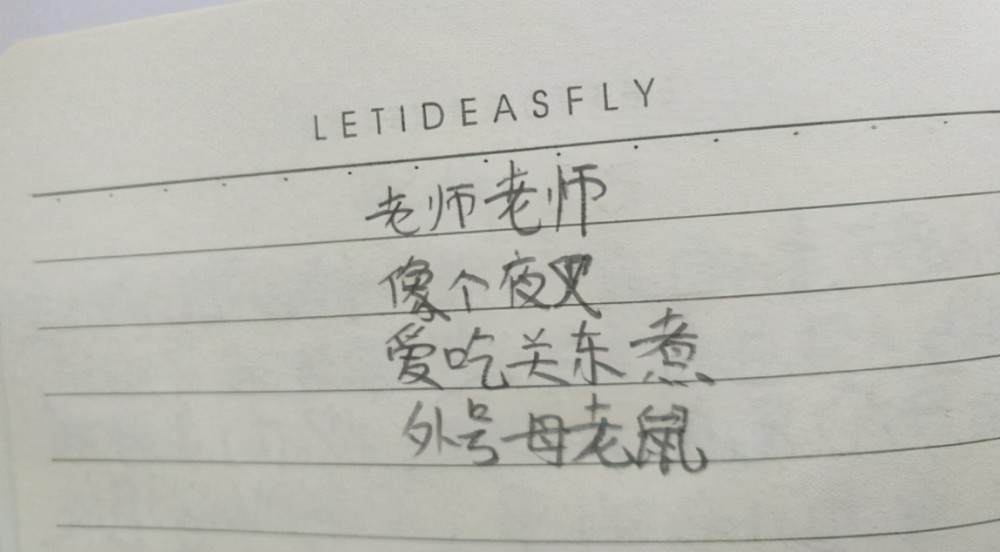 LETIDEASFLY
老师老师
像个夜叉
爱吃关东煮
外号母老鼠